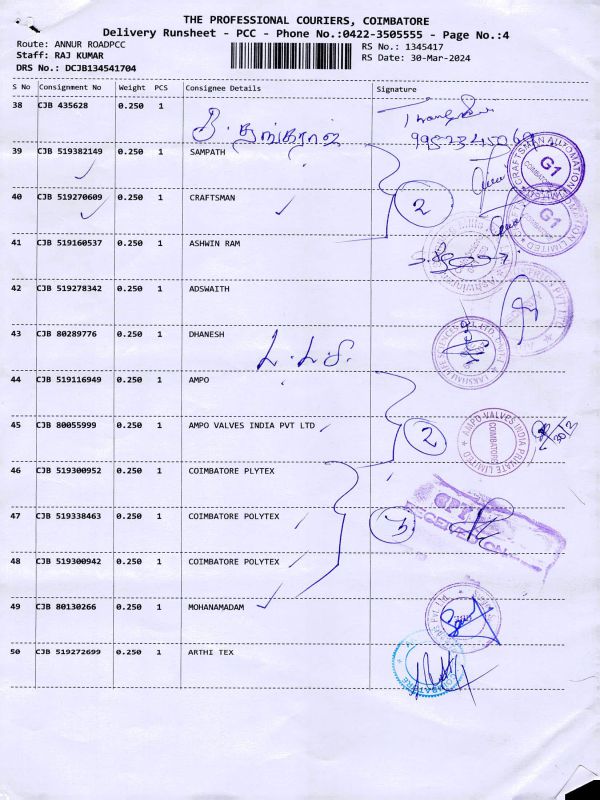 THE PROFESSIONAL COURIERS, COIMBATORE
Delivery Runsheet - PCC - Phone No.:0422-3505555 - Page No.:4
Route: ANNUR ROADPCC
RS No.: 1345417
Staff: RAJ KUMAR
RS Date: 30-Mar-2024
DRS No.: DCJB134541704
S No Consignment No Weight PCS Consignee Details Signature
38 CJB 435628 0.250 1
39 CJB 519382149 0.250 1 SAMPATH
40 CJB 519270609 0.250 1 CRAFTSMAN 2
41 CJB 519160537 0.250 1 ASHWIN RAM
42 CJB 519278342 0.250 1 ADSWAITH
43 CJB 80289776 0.250 1 DHANESH
44 CJB 519116949 0.250 1 AMPO
45 CJB 80055999 0.250 1 AMPO VALVES INDIA PVT LTD 2
46 CJB 519300952 0.250 1 COIMBATORE PLYTEX
47 CJB 519338463 0.250 1 COIMBATORE POLYTEX
48 CJB 519300942 0.250 1 COIMBATORE POLYTEX
49 CJB 80130266 0.250 1 MOHANAMADAM
50 CJB 519272699 0.250 1 ARTHI TEX
CRAFTSMAN AUTOMATION LIMITED
G1
G1
AMPO-VALVES INDIA PRIVATE LIMITED
COIMBATORE
RECEIVED ON